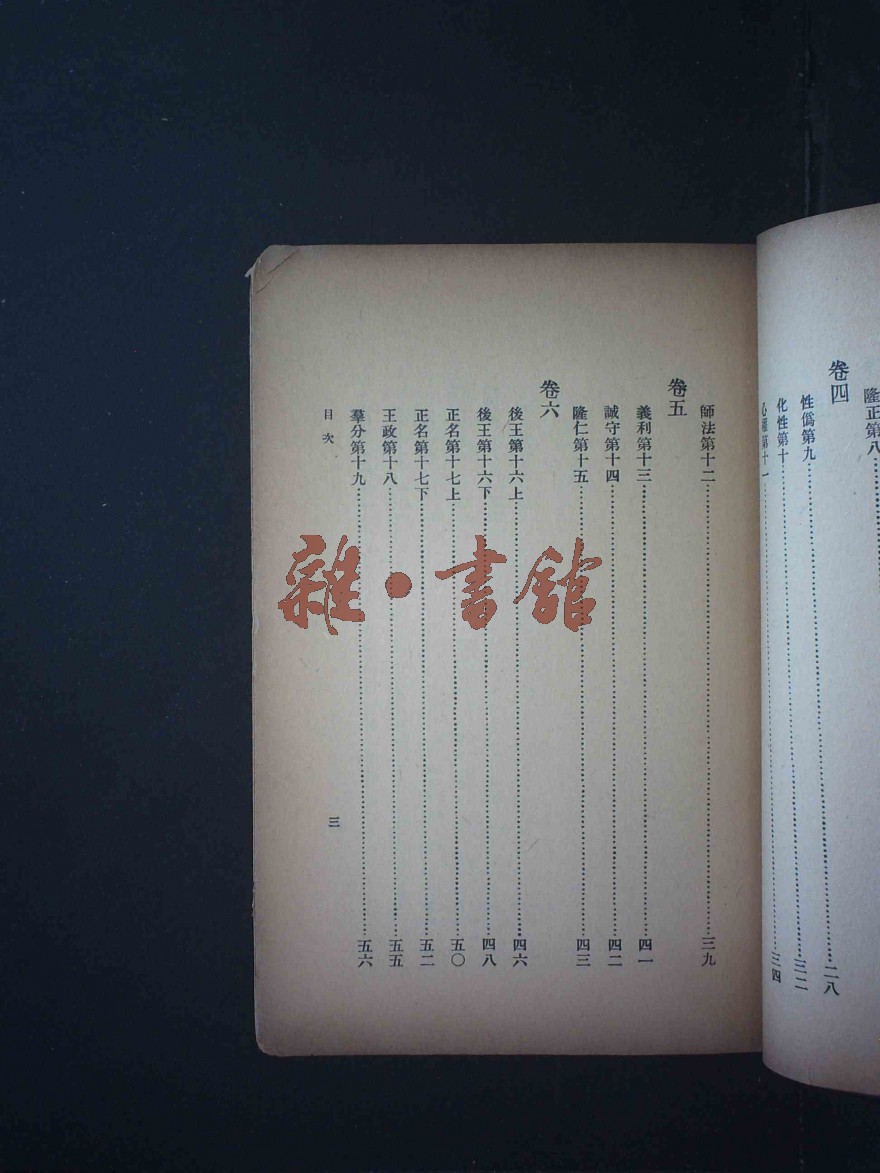 隆正第八
卷四
性僞第九……二八
化性第十……三二
第十一……三四
師法第十二……三九
卷五
義利第十三……四一
誠守第十四……四二
隆仁第十五……四三
卷六
後王第十六上……四六
後王第十六下……四八
正名第十七上……五〇
正名第十七下……五二
王政第十八……五五
羣分第十九……五六
目次
三
雜·書館